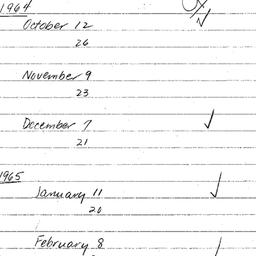 1964
October 12
26
November 9
23
December 7
21
1965
January 11
20
February 8